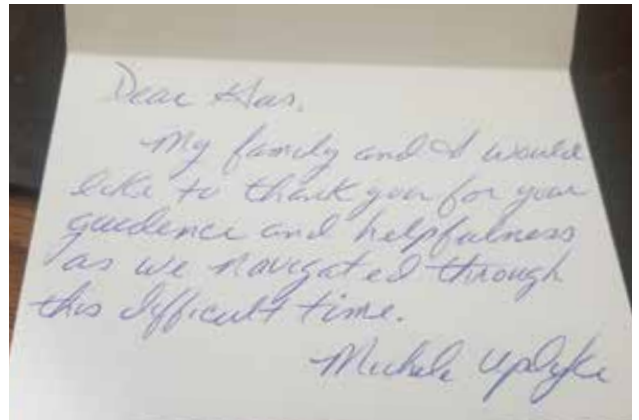 Dear
My family and I would
like to thank you for your
guidence and helpfulness
as we navigated through
this difficult time.
Michele Updyke